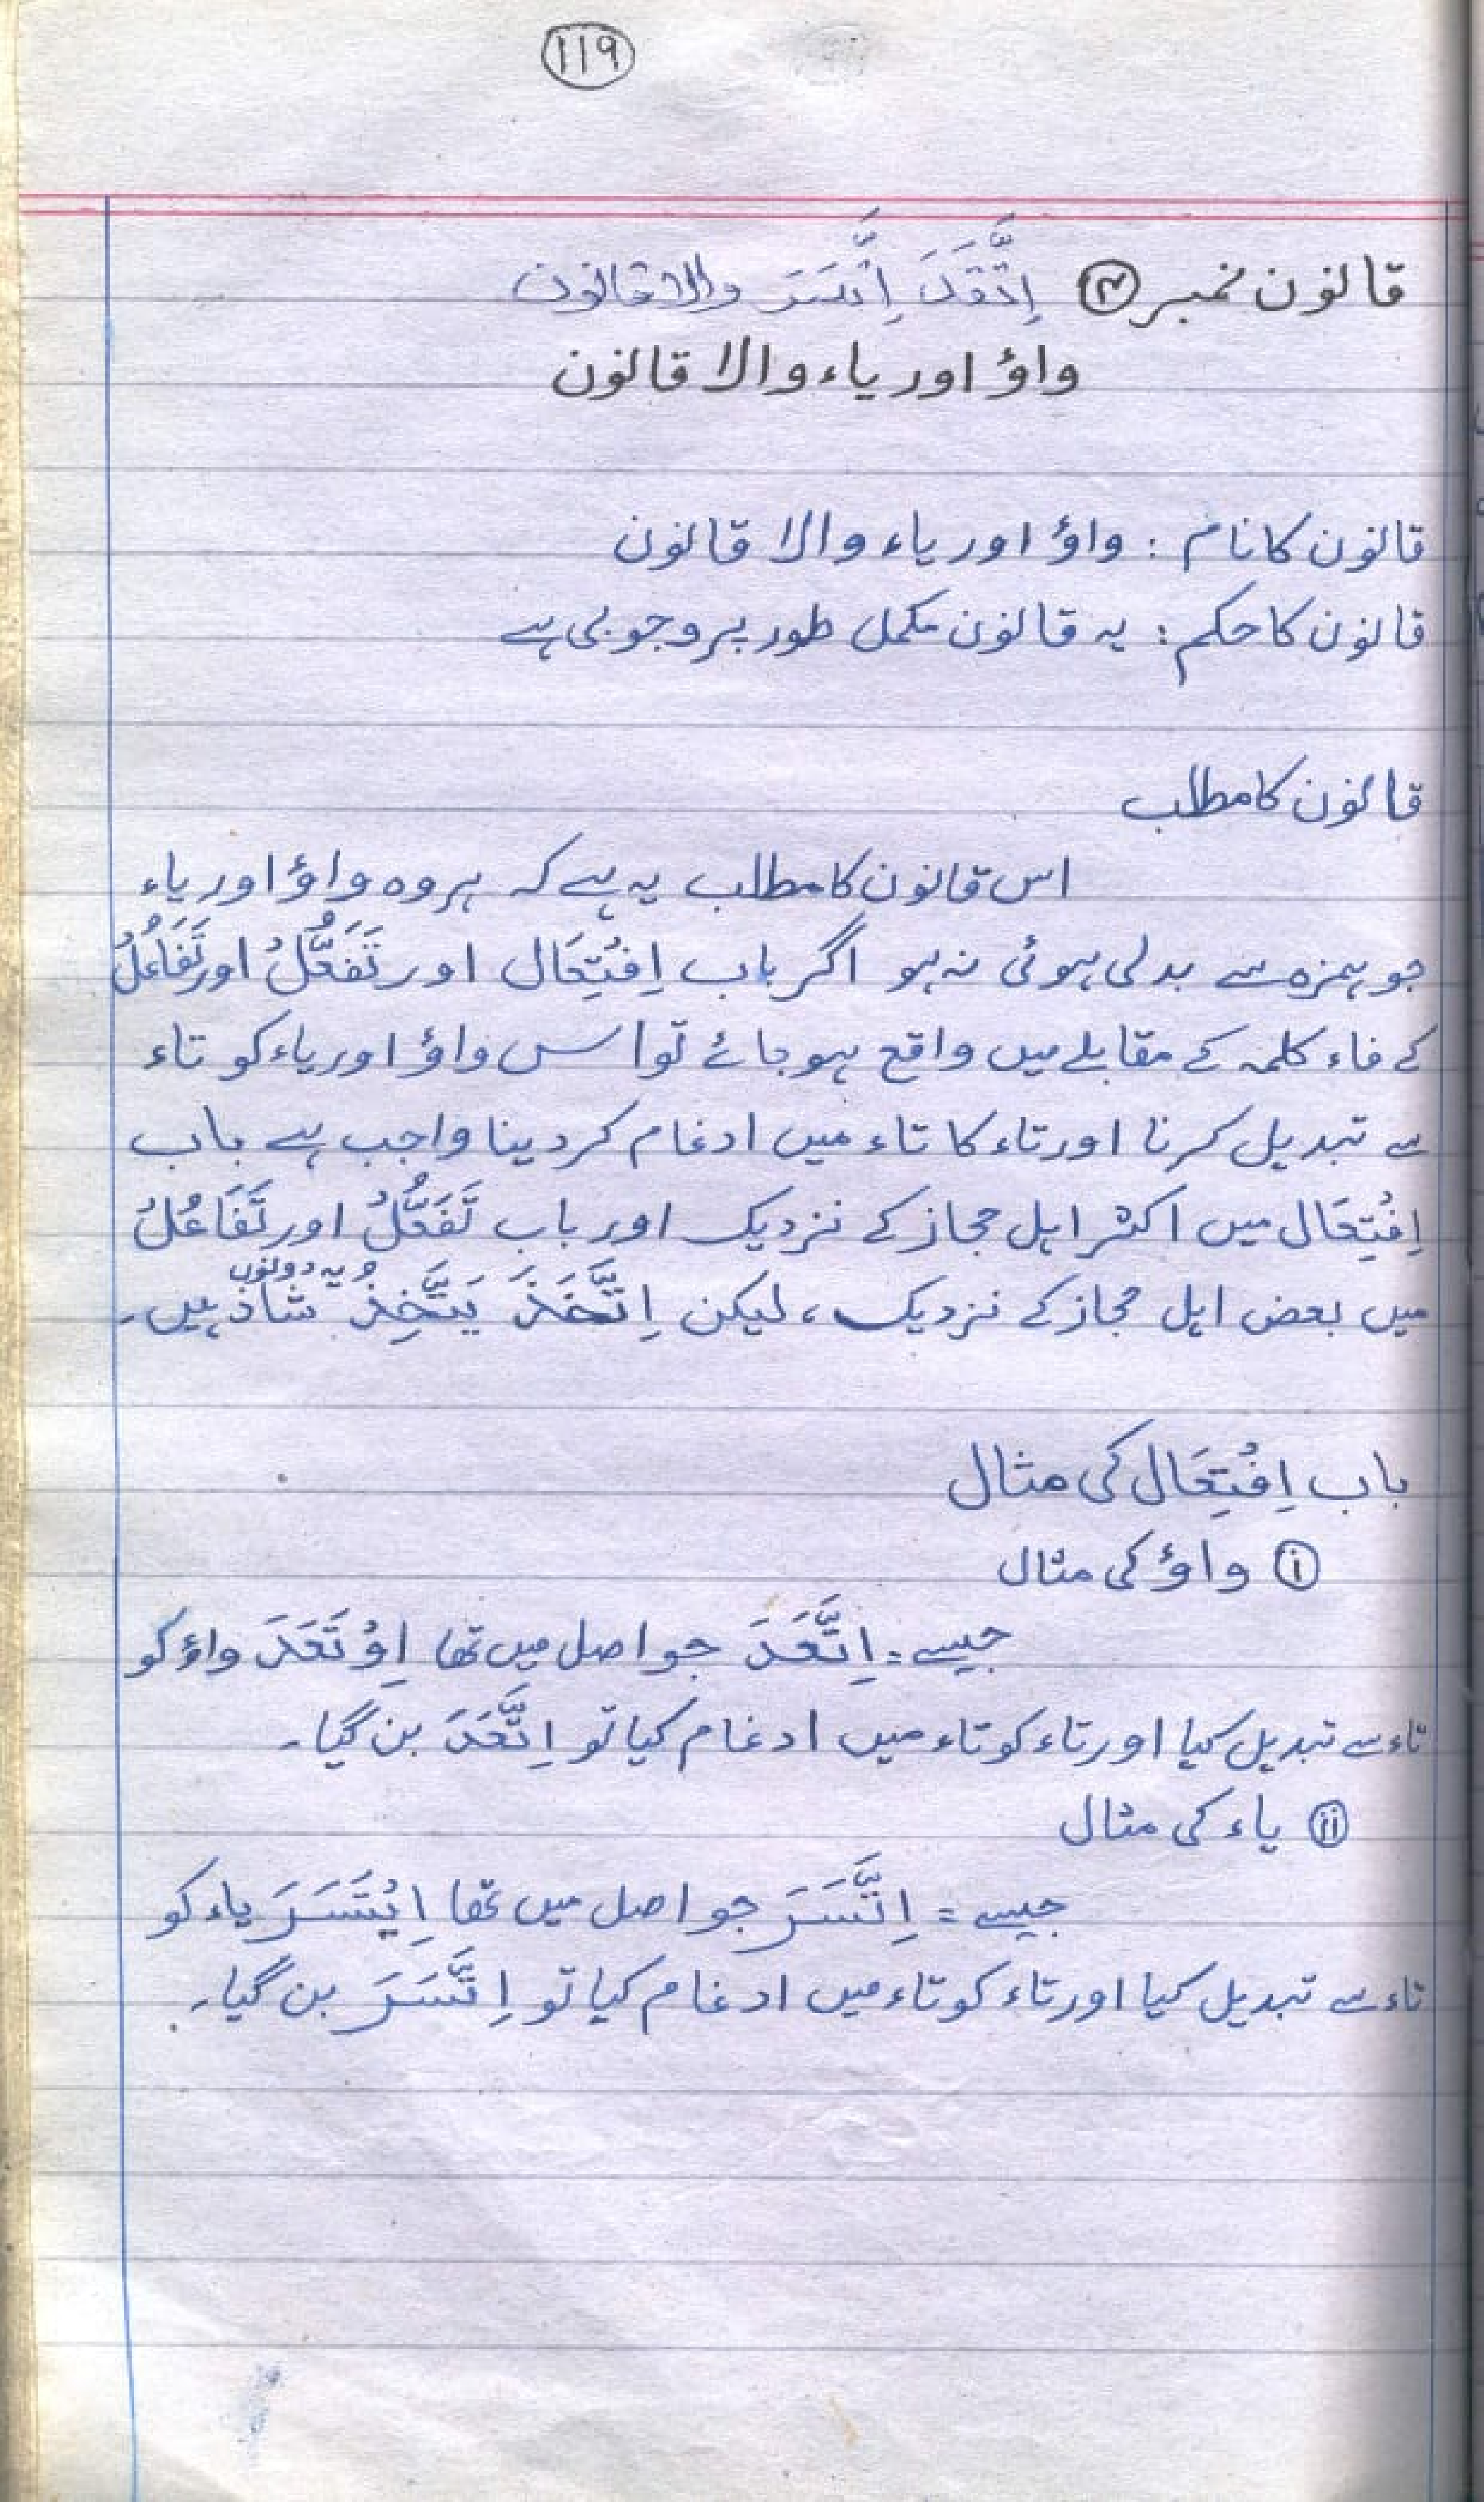 ۱۱۹
قانون نمبر ۳ اِتَّقَدَ اِتَّسَرَ والا قانون
واؤ اور یاء والا قانون
قانون کا نام : واؤ اور یاء والا قانون
قانون کا حکم : یہ قانون مکمل طور پر وجوبی ہے
قانون کا مطلب
اس قانون کا مطلب یہ ہے کہ ہر وہ واؤ اور یاء
جو ہمزہ سے بدلی ہوئی نہ ہو اگر باب اِفْتِعَال اور تَفَعُّلُ اور تَفَاعُلُ
کے فاء کلمہ کے مقابلے میں واقع ہو جائے تو اس واؤ اور یاء کو تاء
سے تبدیل کرنا اور تاء کا تاء میں ادغام کر دینا واجب ہے باب
اِفْتِعَال میں اکثر اہل حجاز کے نزدیک اور باب تَفَعُّلُ اور تَفَاعُلُ
میں بعض اہل حجاز کے نزدیک ، لیکن اِتَّخَذَ يَتَّخِذُ یہ دونوں شاذ ہیں۔
باب اِفْتِعَال کی مثال
i واؤ کی مثال
جیسے = اِتَّعَدَ جو اصل میں تھا اِوْتَعَدَ واؤ کو
تاء سے تبدیل کیا اور تاء کو تاء میں ادغام کیا تو اِتَّعَدَ بن گیا۔
ii یاء کی مثال
جیسے = اِتَّسَرَ جو اصل میں تھا اِيْتَسَرَ یاء کو
تاء سے تبدیل کیا اور تاء کو تاء میں ادغام کیا تو اِتَّسَرَ بن گیا۔